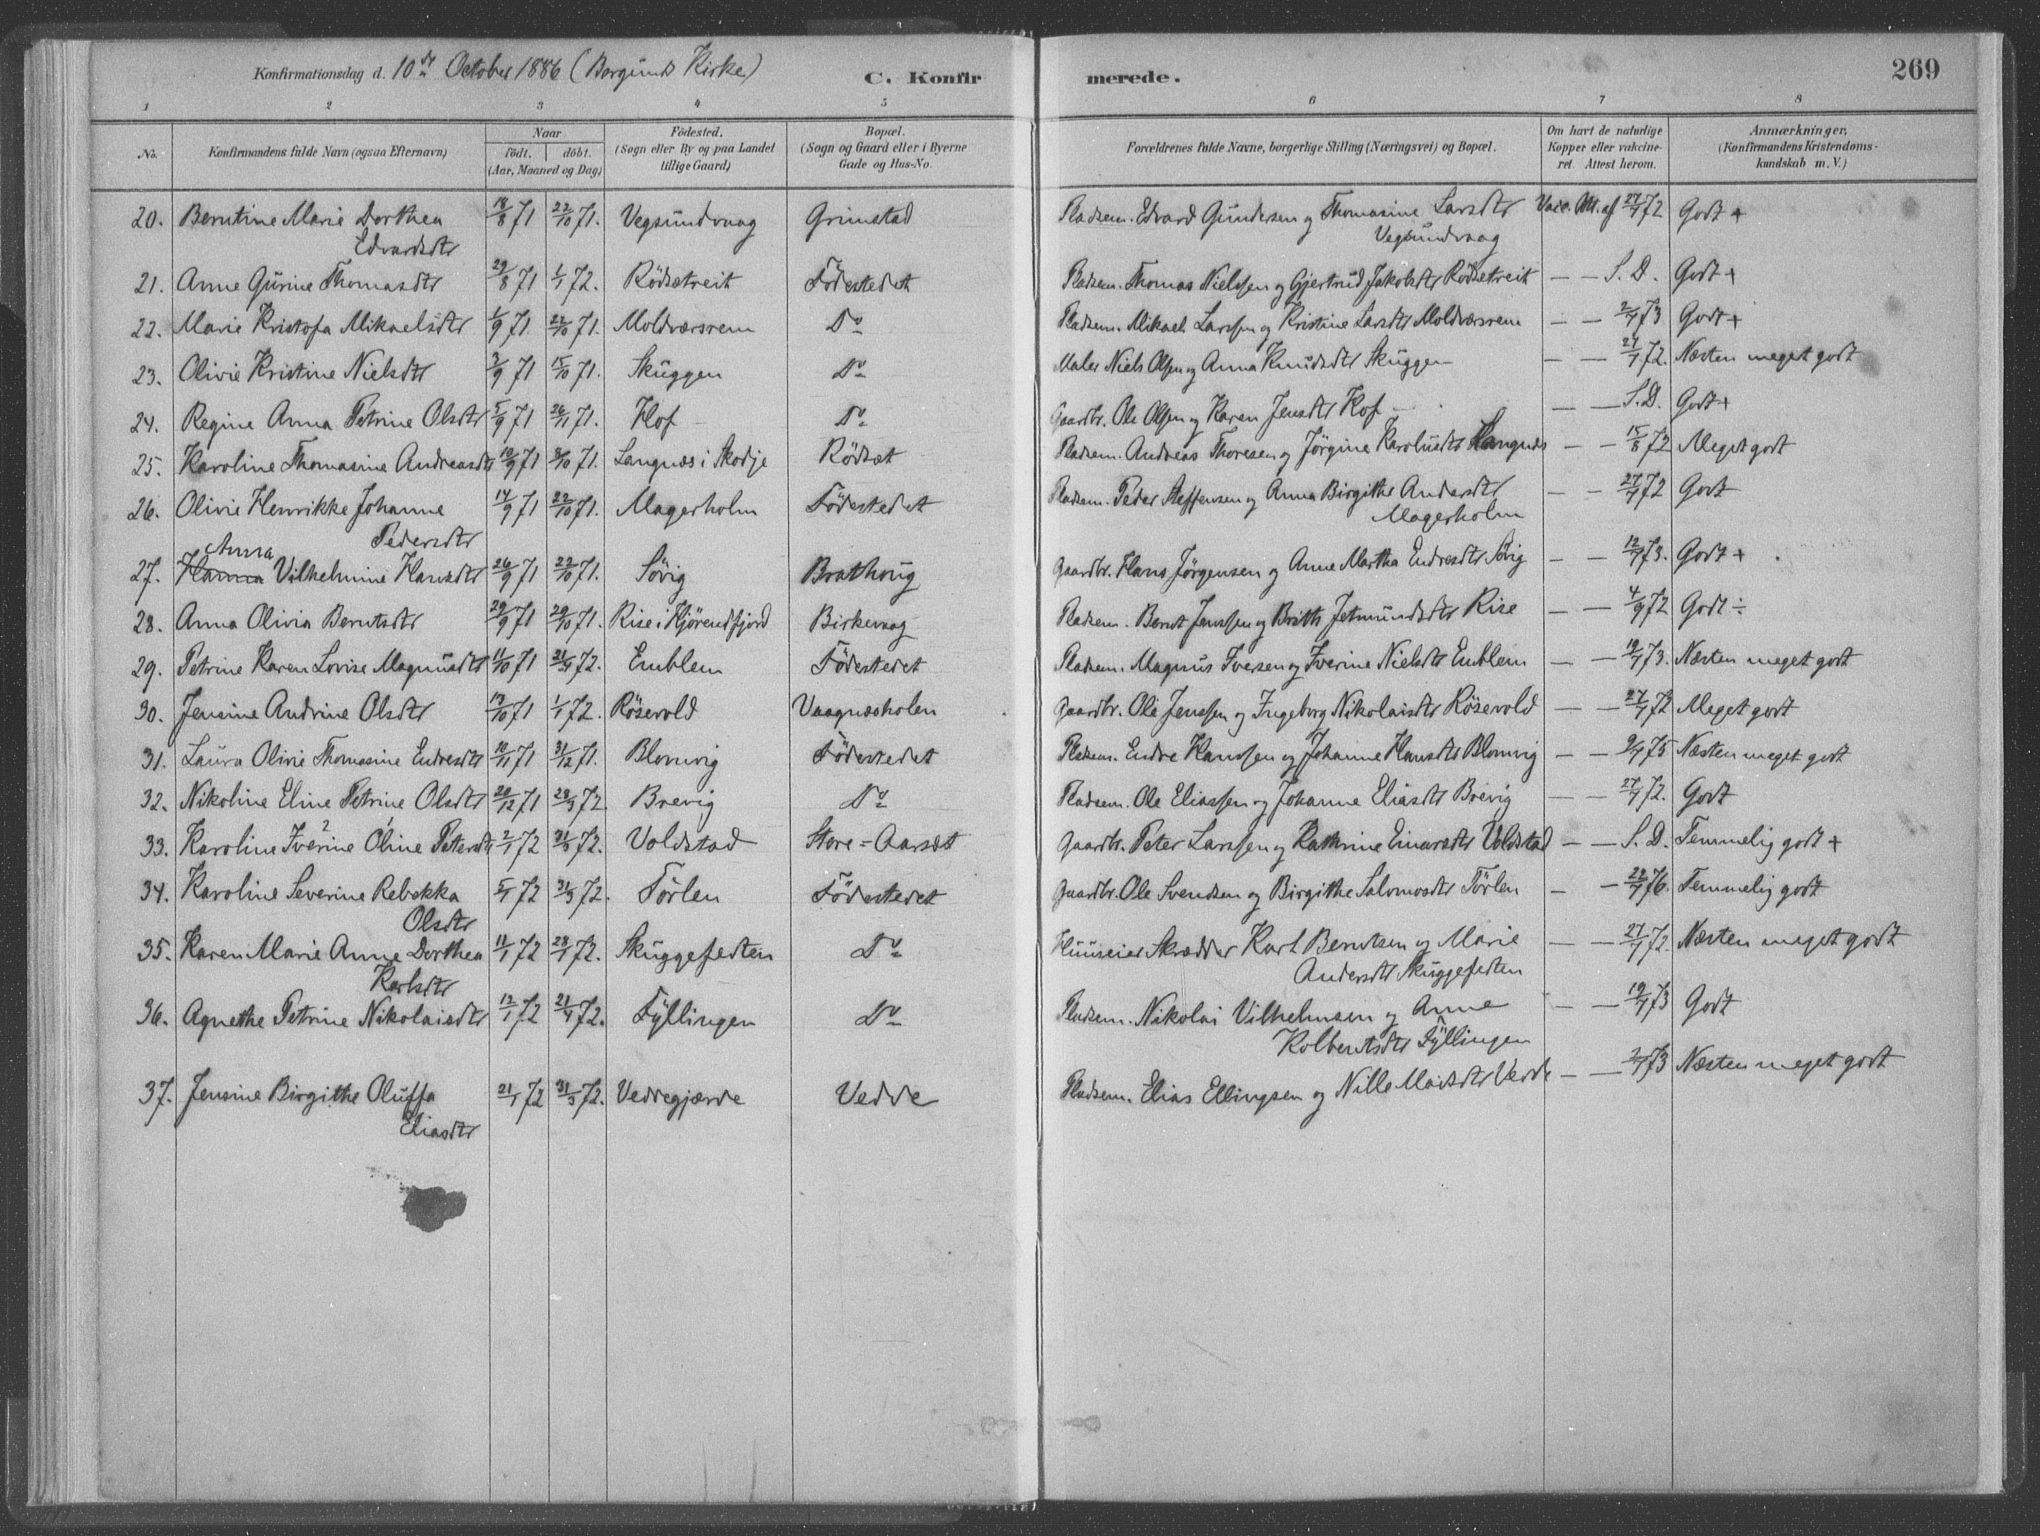 Konfirmationsdag d. 10de October 1886 (Borgunds Kirke)
C. Konfirmerede.
269
1 2 3 4 5 6 7 8
No. Konfirmandens fulde Navn (ogsaa Efternavn) Naar födt. döbt. (Aar, Maaned og Dag) Födested. (Sogn eller By og paa Landet tillige Gaard) Bopæl. (Sogn og Gaard eller i Byerne Gade og Hus-No. Forældrenes fulde Navne, borgerlige Stilling (Næringsvei) og Bopæl. Om havt de naturlige Kopper eller vakcineret. Attest herom. Anmærkninger. (Konfirmandens Kristendomskundskab m. V.)
20. Berntine Marie Dorthea 18/8 71 22/10 71. Vegsundvaag Grimstad Pladsm. Edvard Gundersen og Thomasine Larsdtr Vacc. Att. af 27/7 72 Godt +
Edvardsdtr Vegsundvaag
21. Anne Gurine Thomasdtr 29/8 71 1/1 72. Rödsetreit Födestedet Pladsm. Thomas Nielssen og Gjertrud Jakobsdtr Rödsetreit — — S.D. Godt +
22. Marie Kristofa Mikaelsdtr 1/9 71 22/10 71. Moldværsrem Do Pladsm. Mikael Larssen og Kristine Larsdtr Moldværsrem — — 2/7 73 Godt +
23. Olivie Kristine Nielsdtr 3/9 71 15/10 71. Skuggen Do Maler Niels Olsen og Anna Knudsdtr Skuggen — — 27/7 72. Næsten meget godt
24. Regine Anna Petrine Olsdtr 5/9 71 26/11 71. Hof Do Gaardbr. Ole Olsen og Karen Jensdtr Hof — — S.D. Godt +
25. Karoline Thomasine Andreasdtr 10/9 71 8/10 71. Langnæs i Skodje Rödset Pladsm. Andreas Thoresen og Jörgine Karolusdtr Langnæs — — 15/8 72 Meget godt
26. Olivie Henrikke Johanne 14/9 71 22/10 71. Magerholm Födestedet Pladsm. Peder Steffensen og Anna Birgithe Andersdtr — — 27/7 72 Godt
Pedersdtr Magerholm
Anna
27. Hanna Vilhelmine Hansdtr 26/9 71 22/10 71. Sövig Brathoug Gaardbr. Hans Jörgensen og Anne Martha Endresdtr Sövig — — 12/7 73. Godt +
28. Anna Olivia Berntsdtr 29/9 71 29/10 71. Rise i Hjörendfjord Birkevaag Pladsm. Bernt Jenssen og Brith Jetmundsdtr Rise — — 4/9 72 Godt ÷
29. Petrine Karen Lovise Magnusdtr 11/10 71 21/4 72. Emblem Födestedet Pladsm. Magnus Iversen og Iverine Nielsdtr Emblem — — 19/7 73. Næsten meget godt
30. Jensine Andrine Olsdtr 13/10 71 1/1 72. Rösevold Vaagnæsholen Gaardbr. Ole Jenssen og Ingeborg Nikolaisdtr Rösevold — — 27/7 72 Meget godt
31. Laura Olivie Thomasine Endresdtr 10/11 71 31/12 71. Blomvig Födestedet Pladsm. Endre Hanssen og Johanne Hansdtr Blomvig — — 9/7 75 Næsten meget godt
32. Nikoline Eline Petrine Olsdtr 20/12 71 28/3 72. Brevig Do Pladsm. Ole Eliassen og Johanne Eliasdtr Brevig — — 27/7 72. Godt
33. Karoline Iverine Oline Petersdtr 2/1 72 31/3 72. Voldstad Store-Aarsæt Gaardbr. Peter Larssen og Kathrine Einarsdtr Voldstad — — S.D. Temmelig godt +
34. Karoline Severine Rebekka 5/1 72 31/3 72. Törlen Födestedet Gaardbr. Ole Svendsen og Birgithe Salomosdtr Törlen — — 22/7 76. Temmelig godt
Olsdtr
35. Karen Marie Anne Dorthea 11/1 72 28/1 72. Skuggefedten Do Huuseier Skrædder Karl Berntsen og Marie — — 27/7 72. Næsten meget godt
Karlsdtr Andersdtr Skuggefedten
36. Agnethe Petrine Nikolaisdtr 13/1 72 21/4 72. Fyllingen Do Pladsm. Nikolai Vilhelmsen og Anne — — 19/7 73 Godt
Kolbentsdtr Fyllingen
37. Jensine Birgithe Oluffa 21/1 72 31/3 72. Veddegjærde Vedde Pladsm. Elias Ellingsen og Nille Matsdtr Vedde — — 2/7 73 Næsten meget godt
Eliasdtr